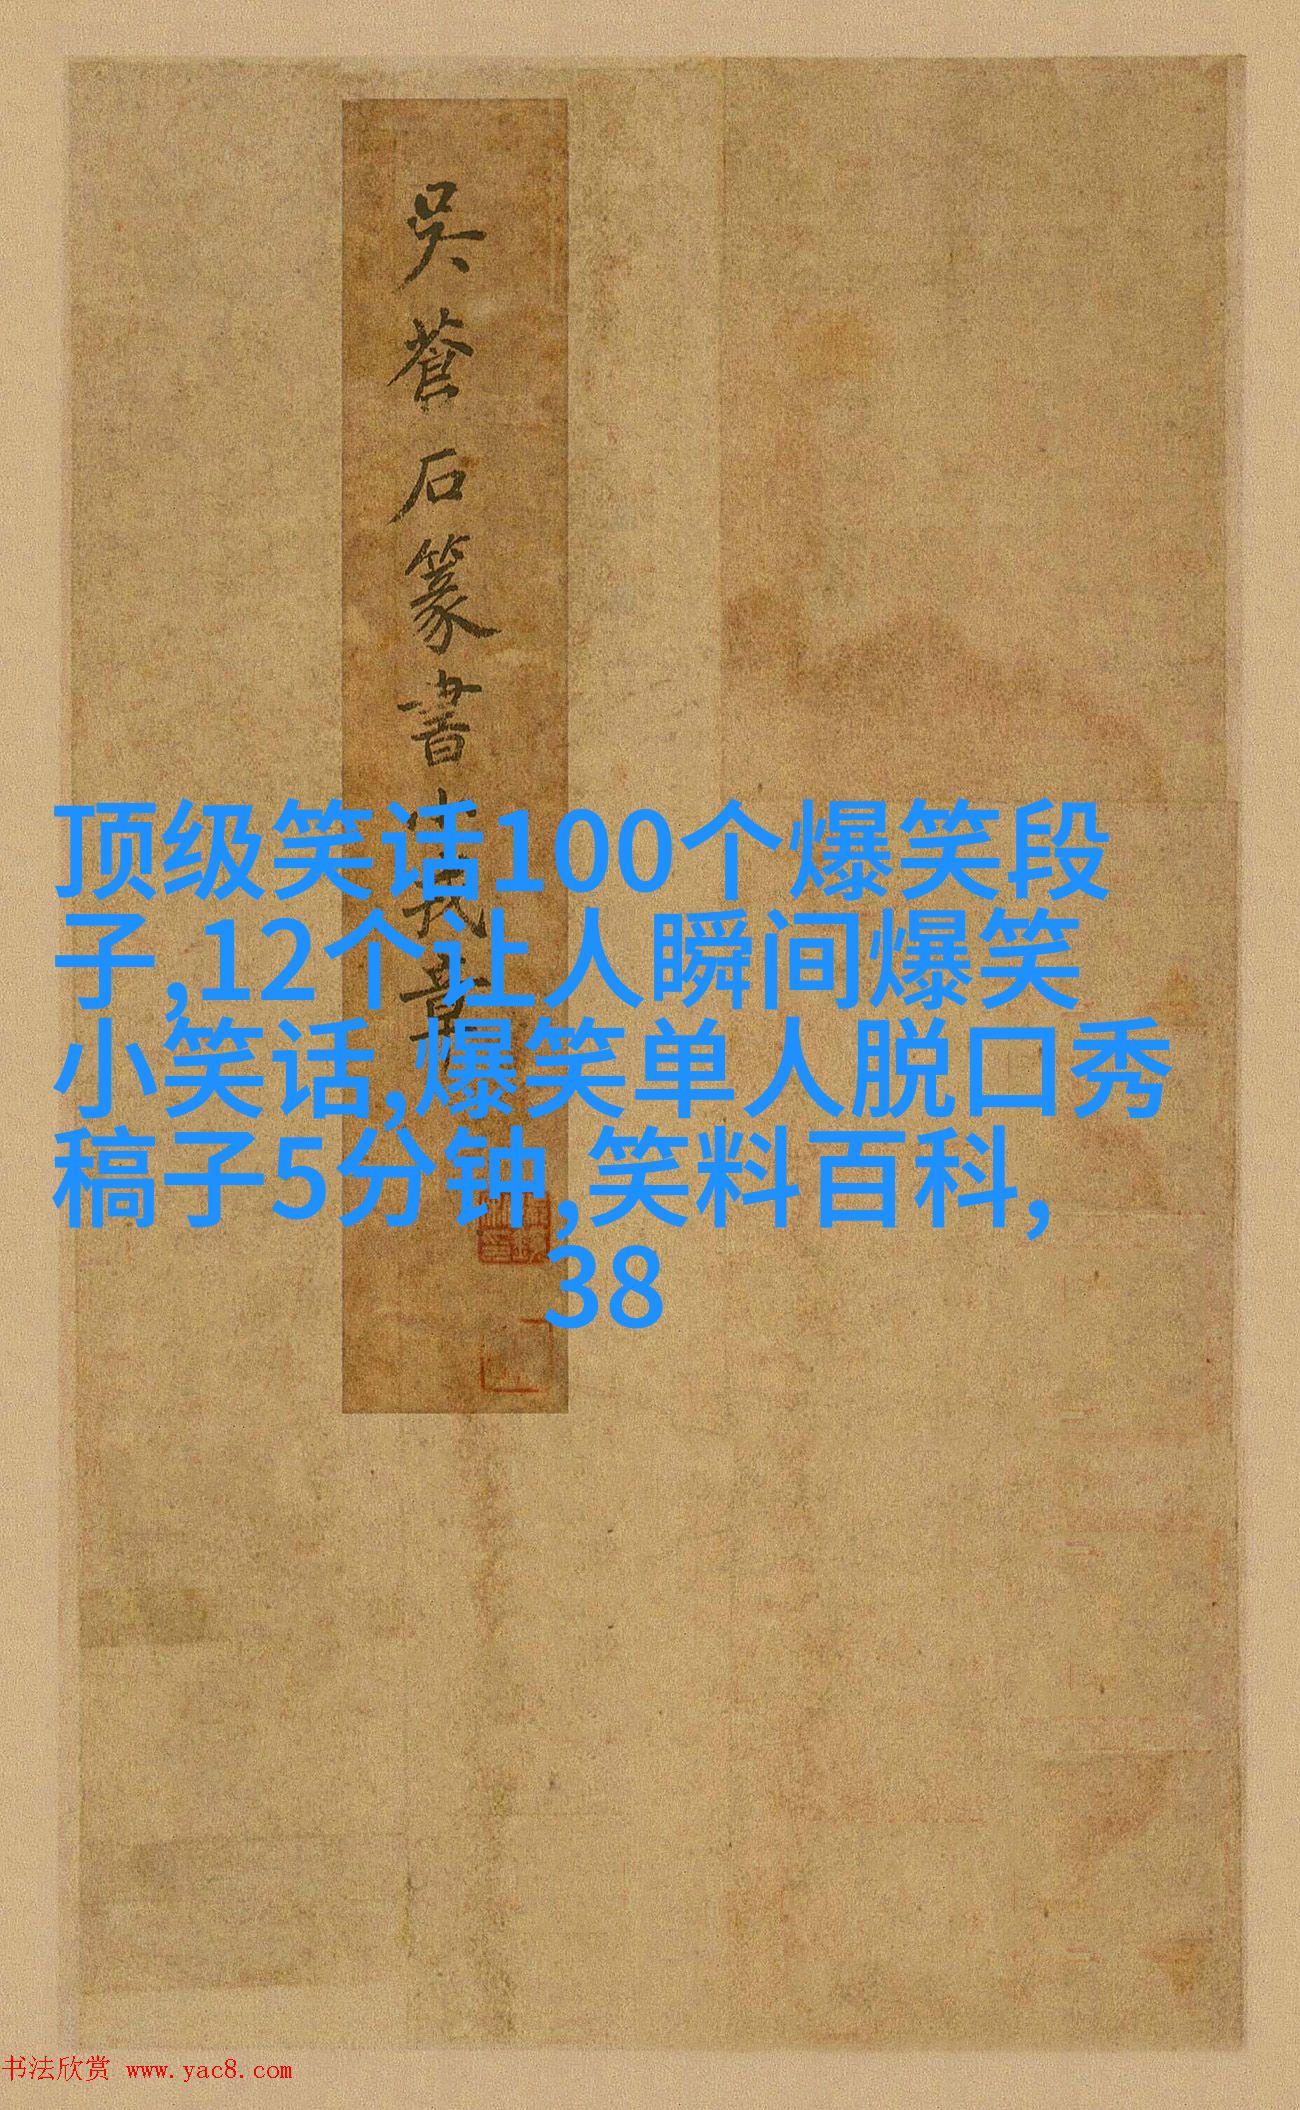 吳蒼石篆書
章
顶级笑话100个爆笑段
子,12个让人瞬间爆笑
小笑话,爆笑单人脱口秀
稿子5分钟,笑料百科,
38
书法欣赏 www.yac8.com